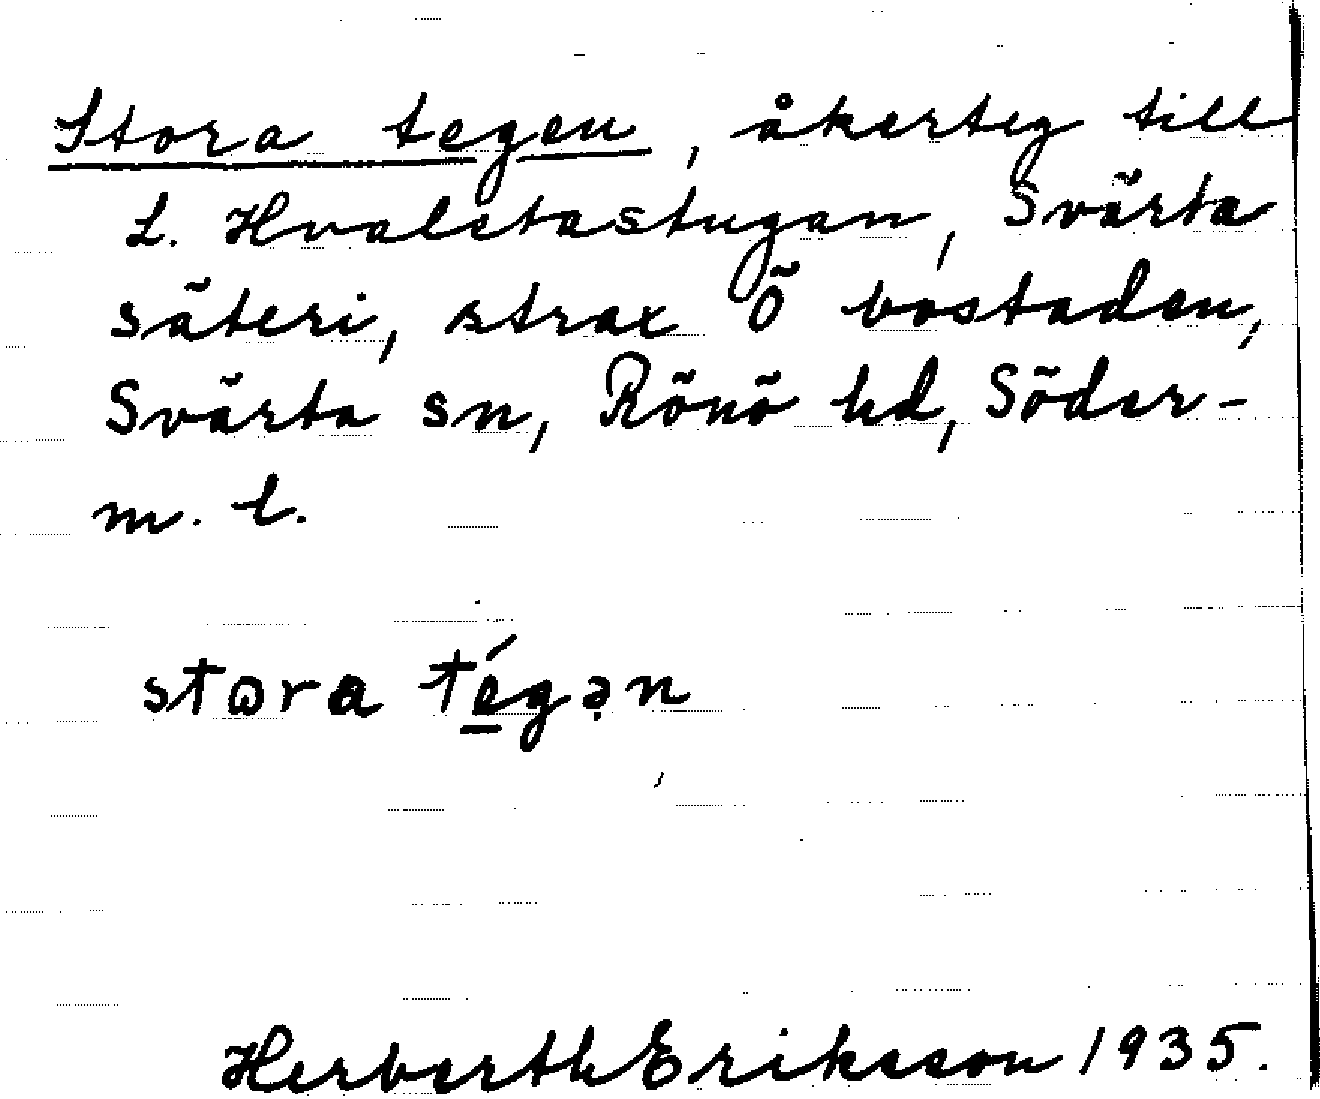 Stora tegen, åkerteg till
L. Hvalstastugan, Svärta
säteri, strax Ö bostaden,
Svärta sn, Rönö hd, Söder-
m. l.
stora tégən
Herberth Eriksson 1935.